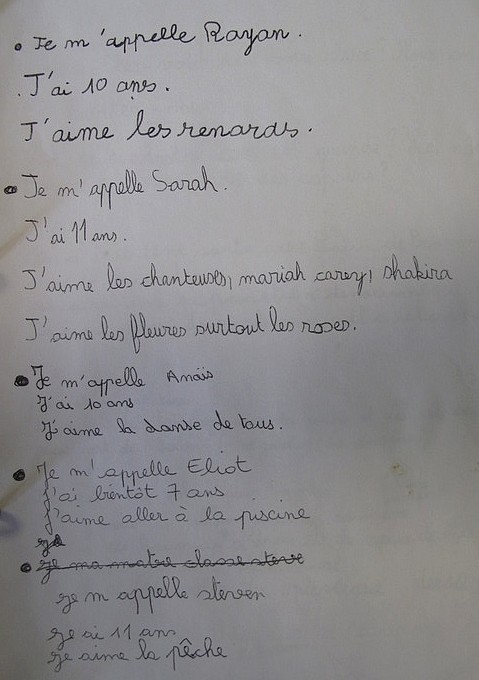 • Je m'appelle Rayan.
. J'ai 10 ans.
J'aime les renards.
• Je m'appelle Sarah.
J'ai 11 ans.
J'aime les chanteuses, mariah carey, shakira
J'aime les fleures surtout les roses.
• Je m'appelle Anaïs
J'ai 10 ans
J'aime la danse de tous.
• Je m'appelle Eliot
J'ai bientôt 7 ans
J'aime aller à la piscine
je
• je ma matre classe steve
je m appelle steven
je ai 11 ans
je aime la pêche